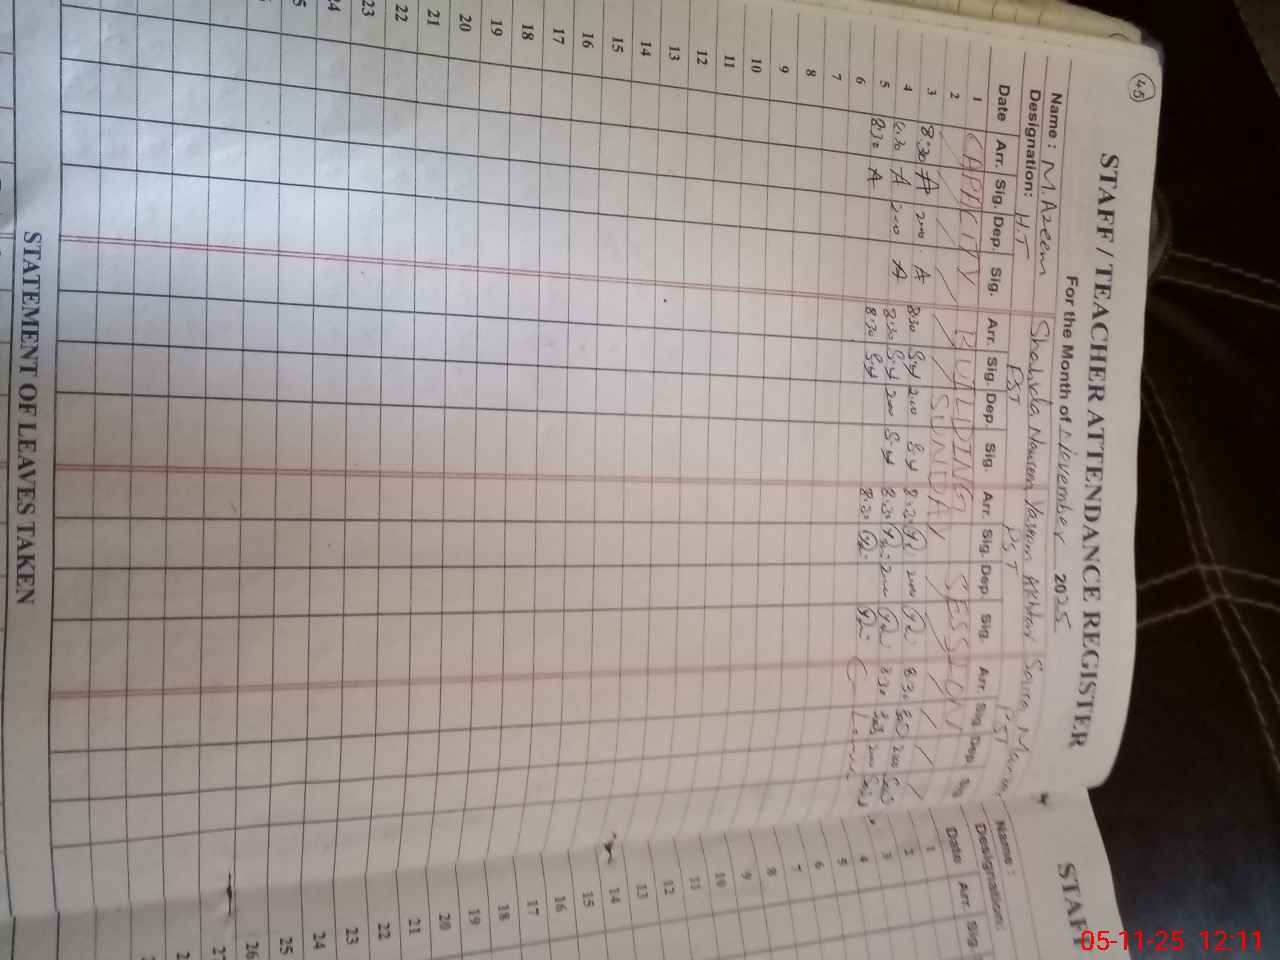 45
STAFF / TEACHER ATTENDANCE REGISTER
For the Month of November 2025
Name : M. Azeem Shahida Naureen Yasmin Akhtar Saira Manzoor
Designation: H.T PST PST PST
Date Arr. Sig. Dep. Sig. Arr. Sig. Dep. Sig. Arr. Sig. Dep. Sig. Arr. Sig. Dep. Sig.
1 CAPACITY BUILDING SESSION
2 SUNDAY
3 8:30 A 2:00 A 8:30 S.y 2:00 S.y 8:30 2:00 8:30 2:00
4 8:30 A 2:00 A 8:30 S.y 2:00 S.y 8:30 2:00 8:30 2:00
5 8:30 A 8:30 S.y 8:30 C Leave
6
7
8
9
10
11
12
13
14
15
16
17
18
19
20
21
22
23
24
STATEMENT OF LEAVES TAKEN
STAFF
Name :
Designation:
Date Arr. Sig.
1
2
3
4
5
6
7
8
9
10
11
12
13
14
15
16
17
18
19
20
21
22
23
24
25
26
05-11-25 12:11